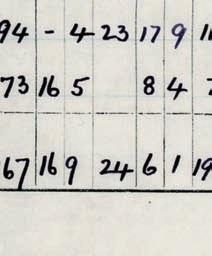 94 - 4 23 17 9
73 16 5 8 4
67 16 9 24 6 1 19